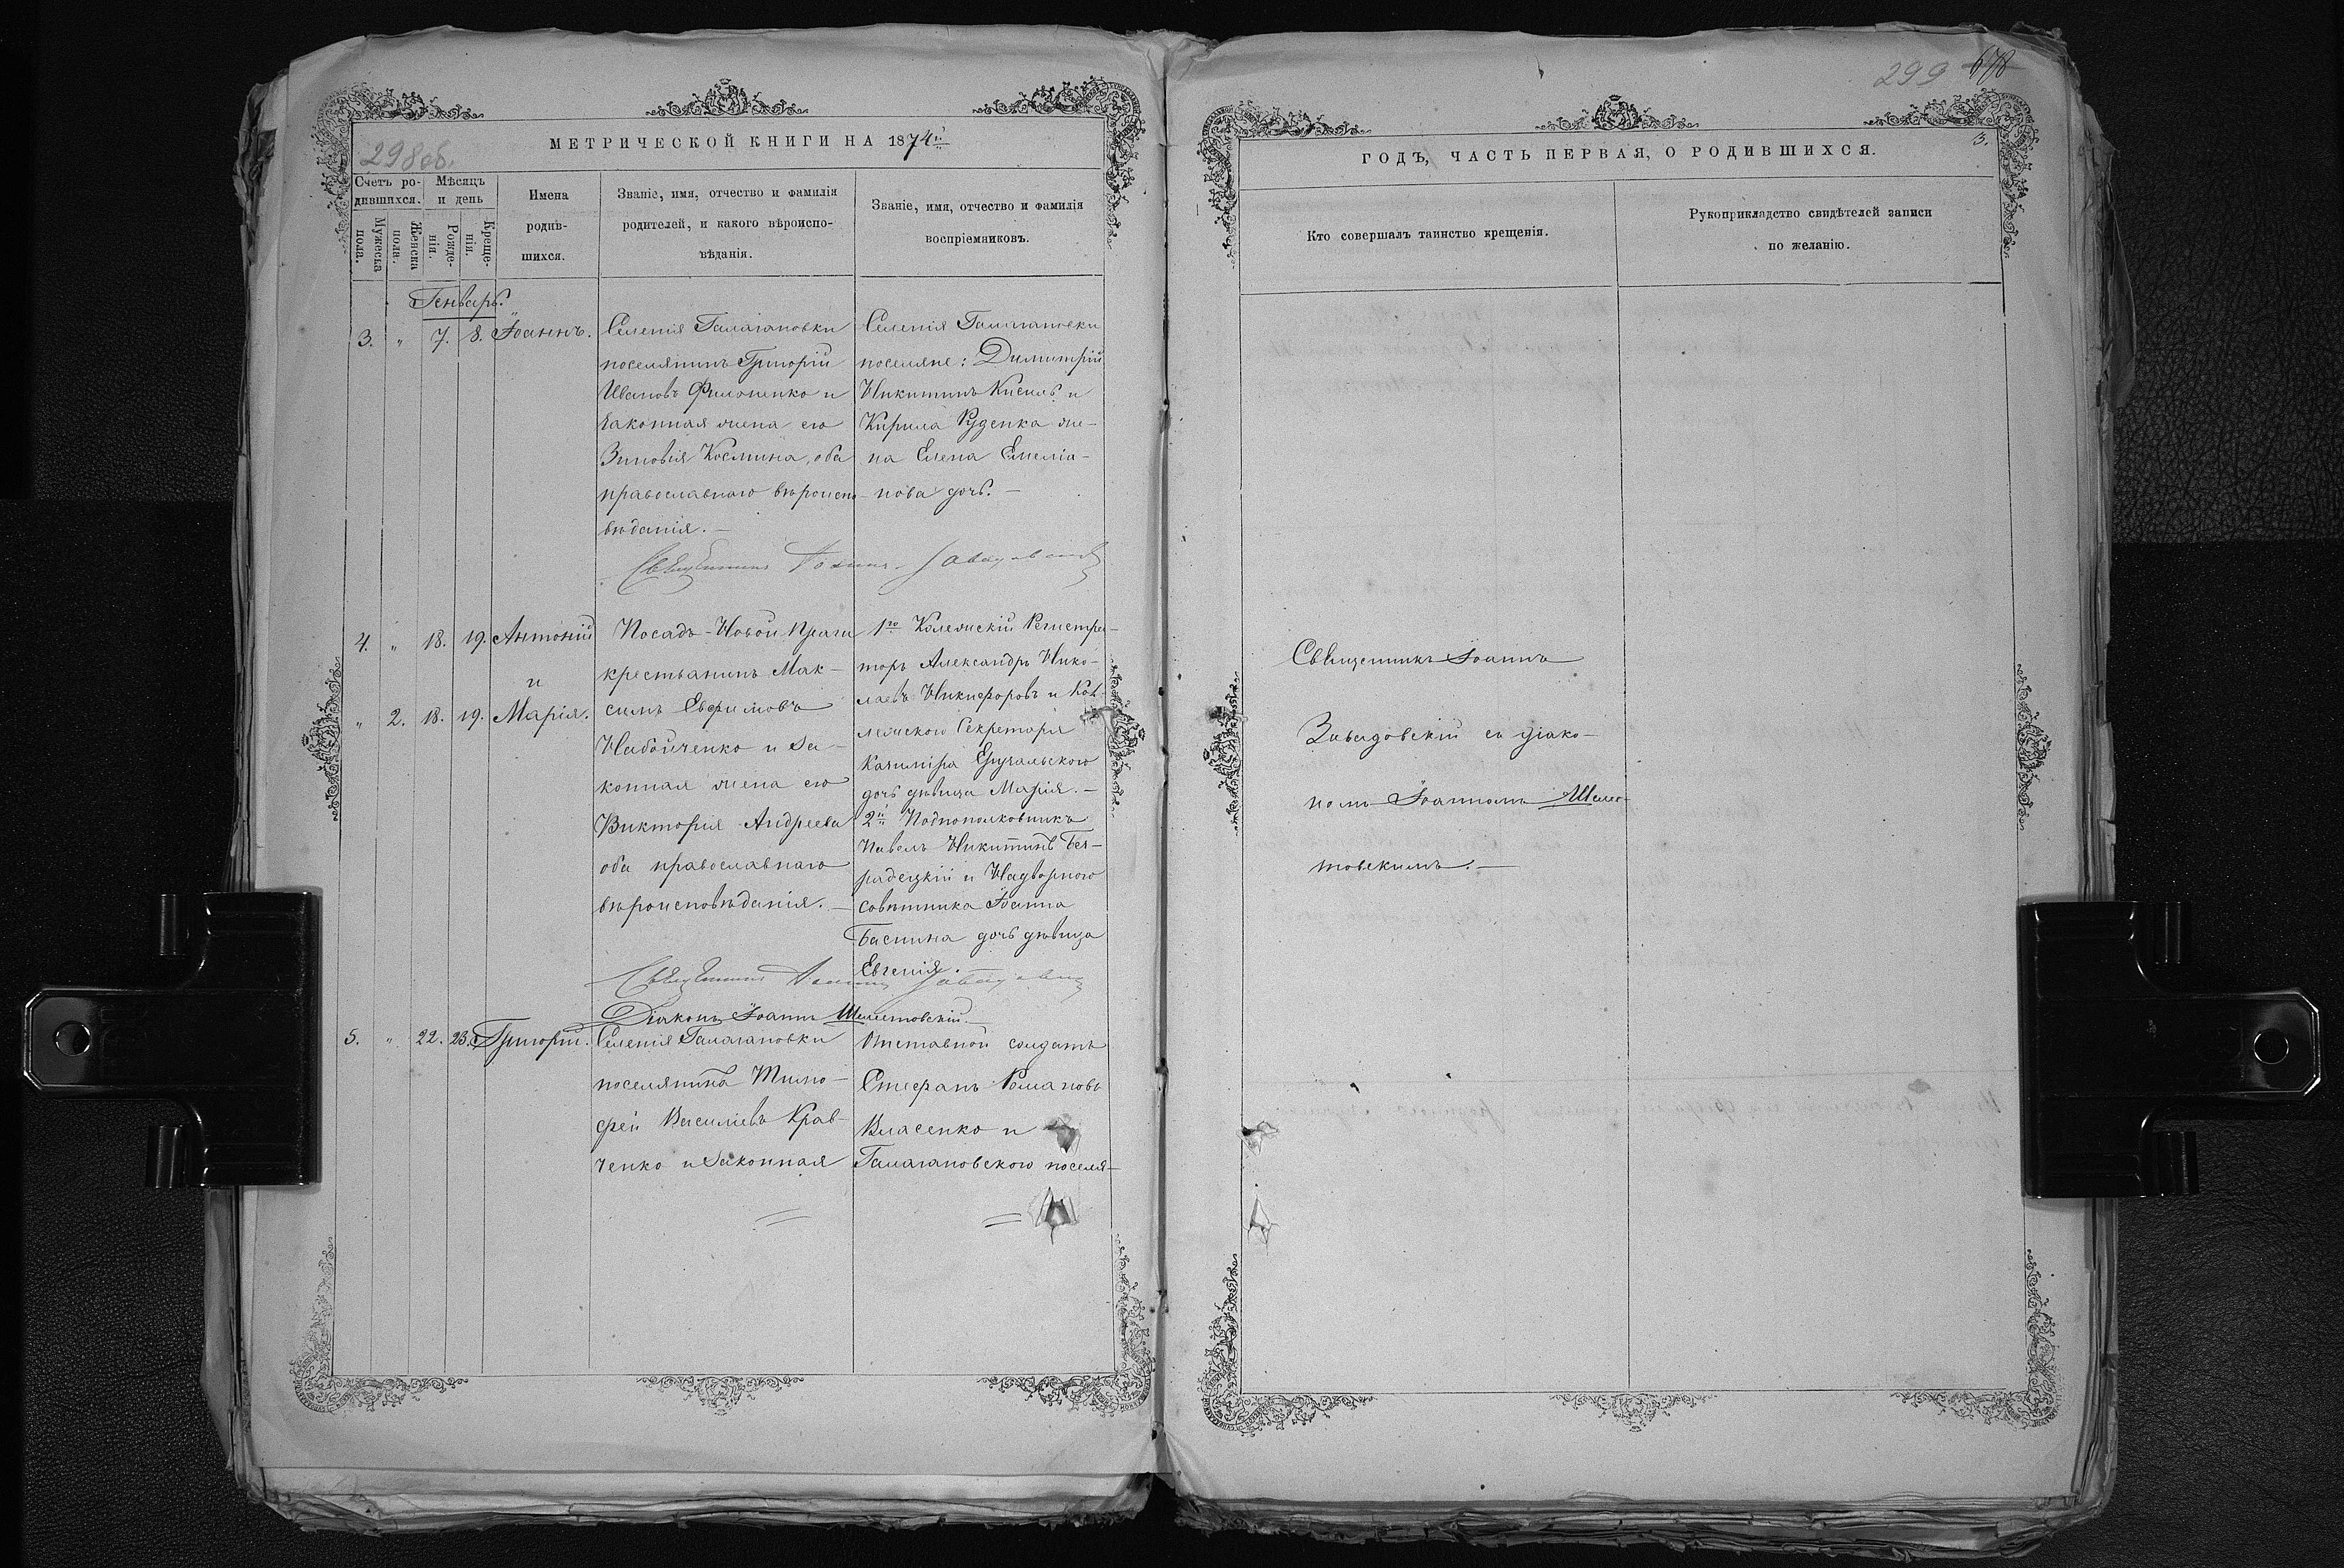 298 об.
МЕТРИЧЕСКОЙ КНИГИ НА 1874й
Счетъ ро-
дившихся.
Мужеска
пола.
Женска
пола.
Мѣсяцъ
и день
Рожде-
нія.
Креще-
нія.
Имена
родив-
шихся.
Званіе, имя, отчество и фамилія
родителей, и какого вѣроиспо-
вѣданія.
Званіе, имя, отчество и фамилія
воспріемниковъ.
Генварь.
3. " 7. 8. Іоаннъ.
Селенія Галагановки
поселянинъ Григорій
Ивановъ Филоненко и
законная жена его
Зиновія Космина, оба
православнаго вѣроиспо-
вѣданія.—
Селенія Галагановки
поселяне: Димитрій
Никитинъ Кисиль и
Кирила Руденка же-
на Елена Емеліа-
нова дочь.—
Священникъ Іоаннъ Завадовскій
4. " 18. 19. Антоній
и
" 2. 18. 19. Марія.
Посадъ-Новой Праги
крестьянинъ Мак-
симъ Евфимовъ
Набойченко и за-
конная жена его
Виктория Андреева
оба православнаго
вѣроисповѣданія.—
1го Колежскій Регистра-
торъ Александръ Нико-
лаевъ Никифоровъ и Кол-
лежскаго Секретаря
Казиміра
дочь дѣвица Марія.—
2й Подполковникъ
Павелъ Никитинъ
и Надворного
совѣтника Іоанна
Баскина дочь дѣвица
Евгенія.
Священникъ Іоаннъ Завадовскій
Діаконъ Іоаннъ Шелетовскій.—
5. " 22. 23. Григорій.
Селенія Галагановки
поселянина Тимо-
фей Василіевъ Крав-
ченко и законная
солдатъ
Стефанъ Романовъ
Власенко и
Галагановского поселя-
299 678
3.
ГОДЪ, ЧАСТЬ ПЕРВАЯ, О РОДИВШИХСЯ.
Кто совершалъ таинство крещенія.
Рукоприкладство свидѣтелей записи
по желанію.
Священникъ Іоаннъ
Завадовскій съ діако-
номъ Іоанномъ Шеле-
товскимъ.—